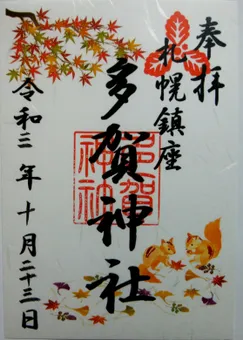 奉拝
札幌鎮座
多賀神社
多賀神社
令和三年十月二十三日